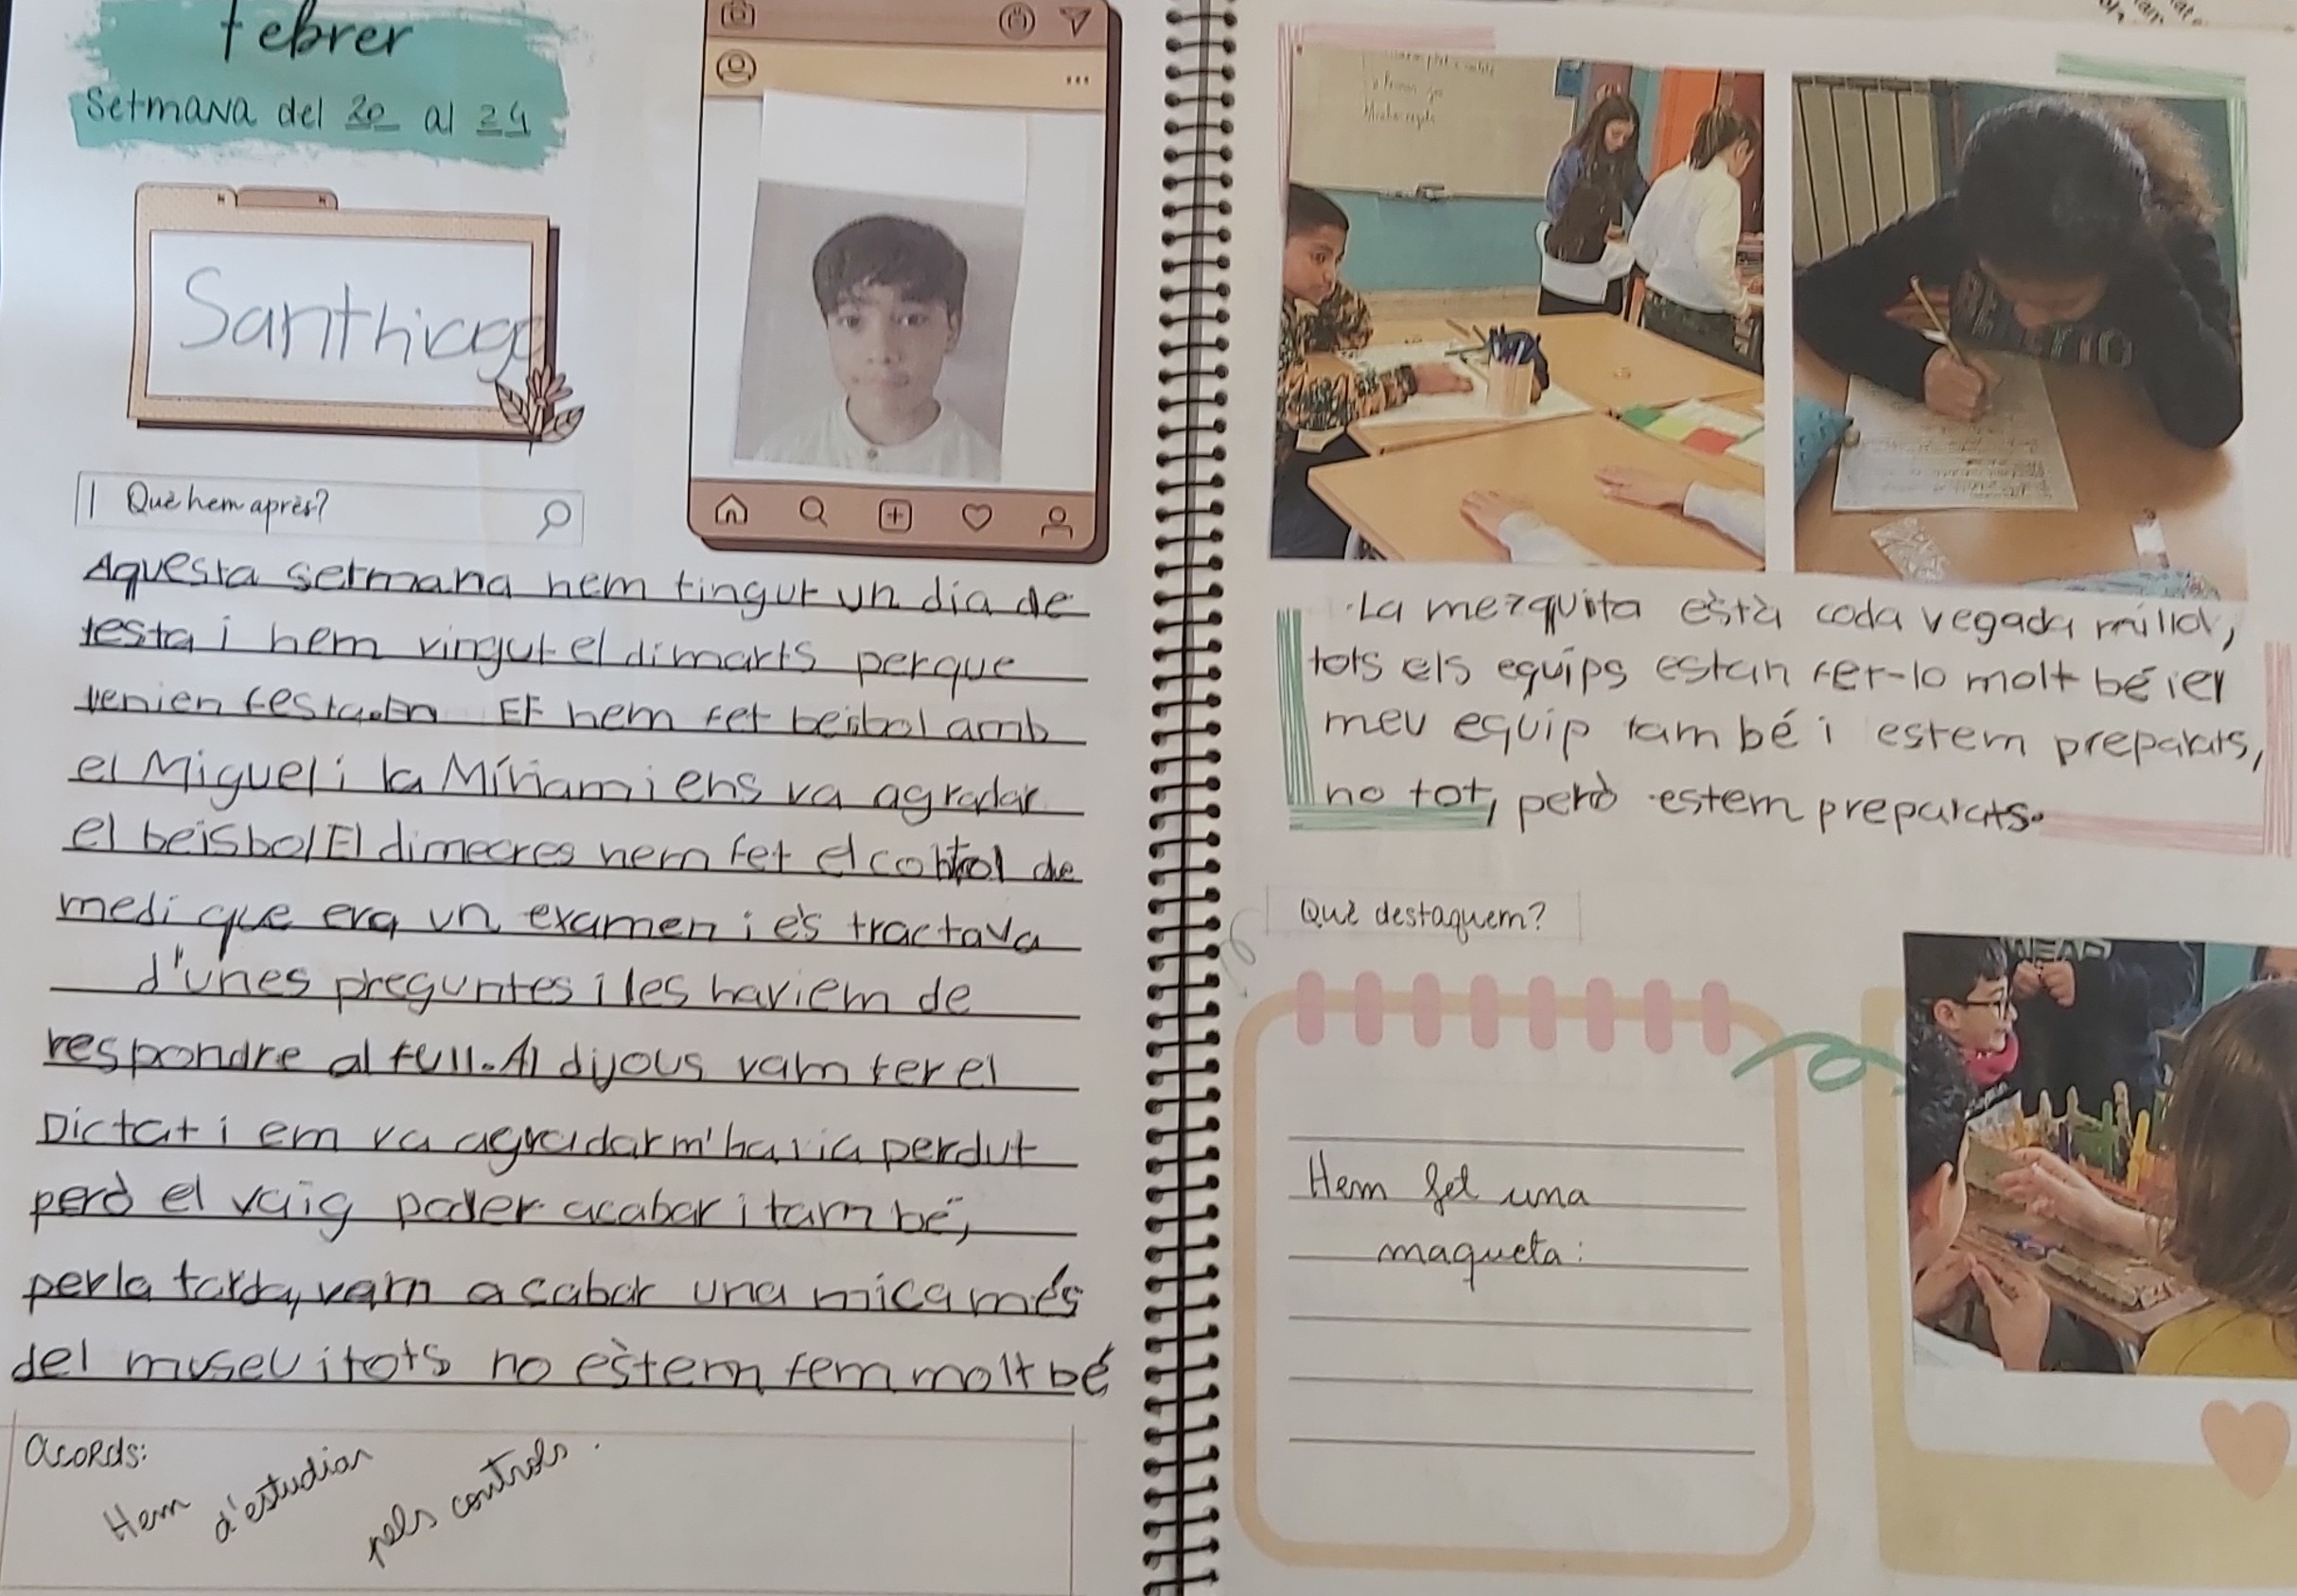 Febrer
Setmana del 20 al 24
Santhiago
Què hem après?
Aquesta setmana hem tingut un dia de
festa i hem vingut el dimarts perque
venien festa. En EF hem fet beisbol amb
el Miguel i la Míriam i ens va agradar
el beisbol El dimecres hem fet el control de
medi que era un examen i és tractava
d'unes preguntes i les haviem de
respondre al full. Al dijous vam fer el
Dictat i em va agradar m'havia perdut
però el vaig poder acabar i també,
per la tarda, vam acabar una mica més
del museu i tots no èstem fem molt bé
Acords:
Hem d'estudiar
pels controls.
La mezquita està cada vegada millor,
tots els equips estan fer-lo molt bé i el
meu equip també i estem preparats,
no tot, però estem preparats.
Què destaquem?
Hem fet una
maqueta: